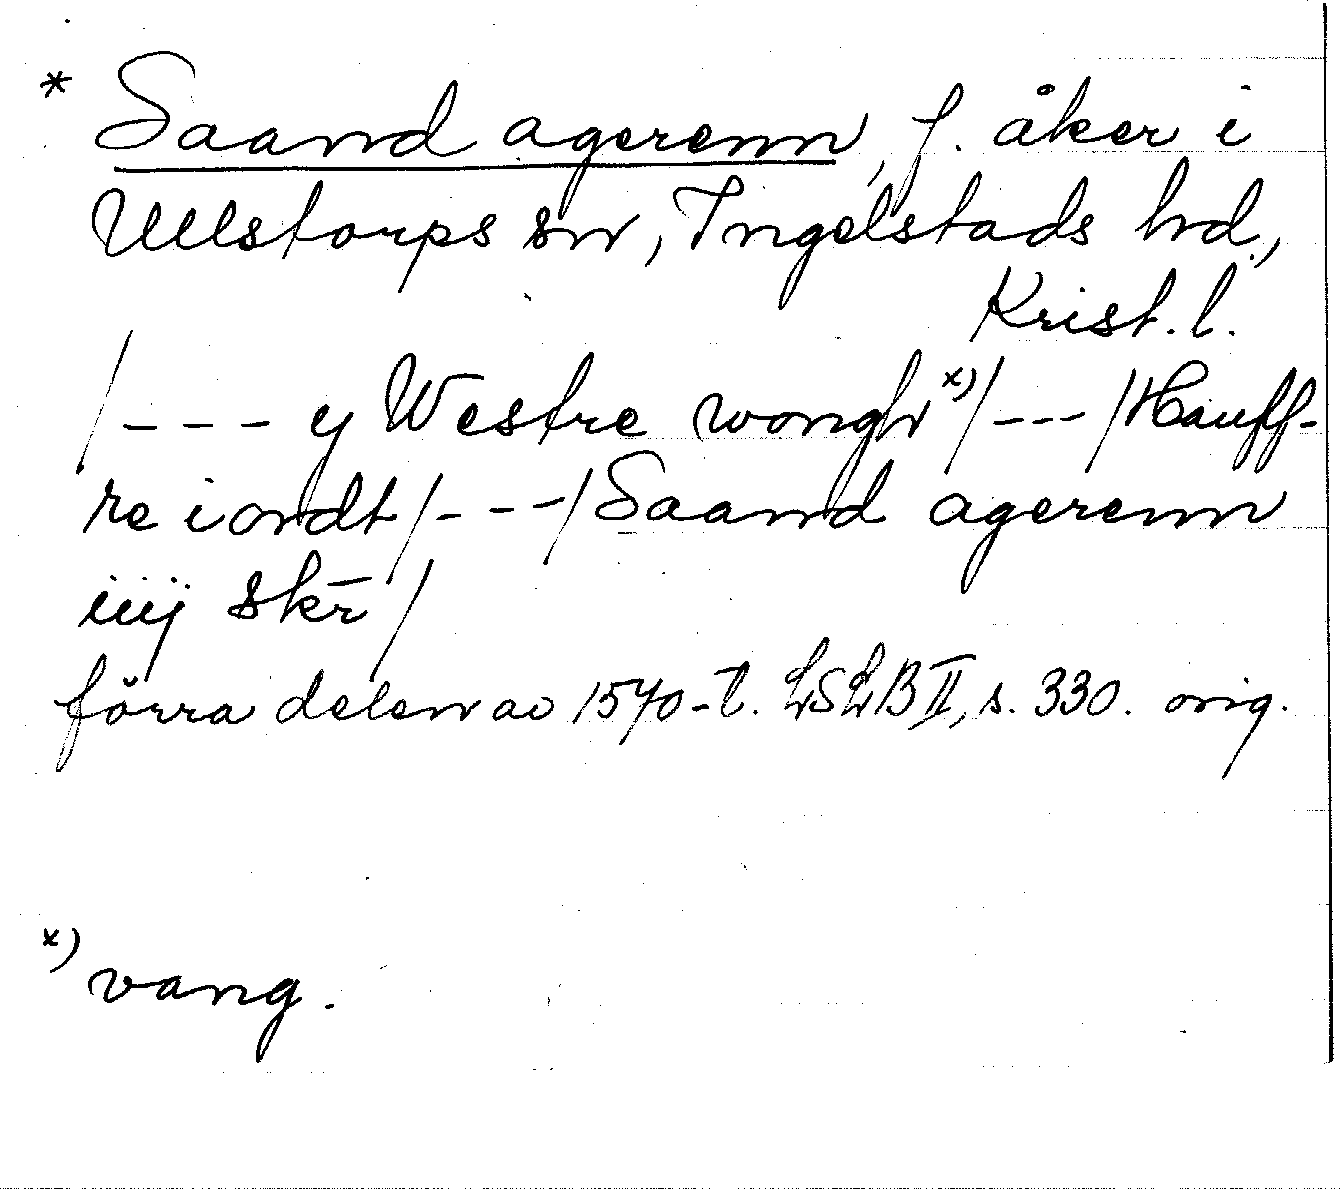 * Saand agerenn, f. åker i
Ullstorps sn, Ingelstads hd.,
Krist. l.
/--- y Westre wongh x)/---/Hauff-
re iordt/---/Saand agerenn
iiij skr̄/
förra delen av 1570-t. LSLB II, s. 330. orig.
x) vang.